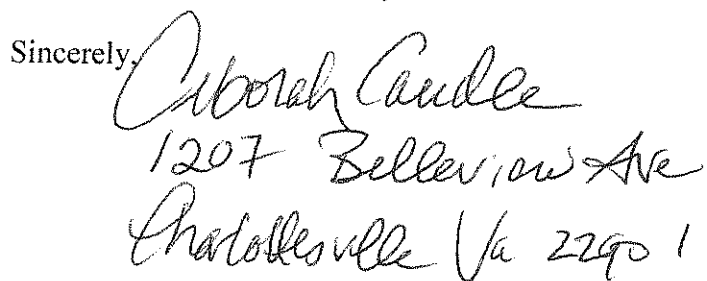 Sincerely,
Deborah Caudle
1207 Belleview Ave
Charlottesville Va 22901